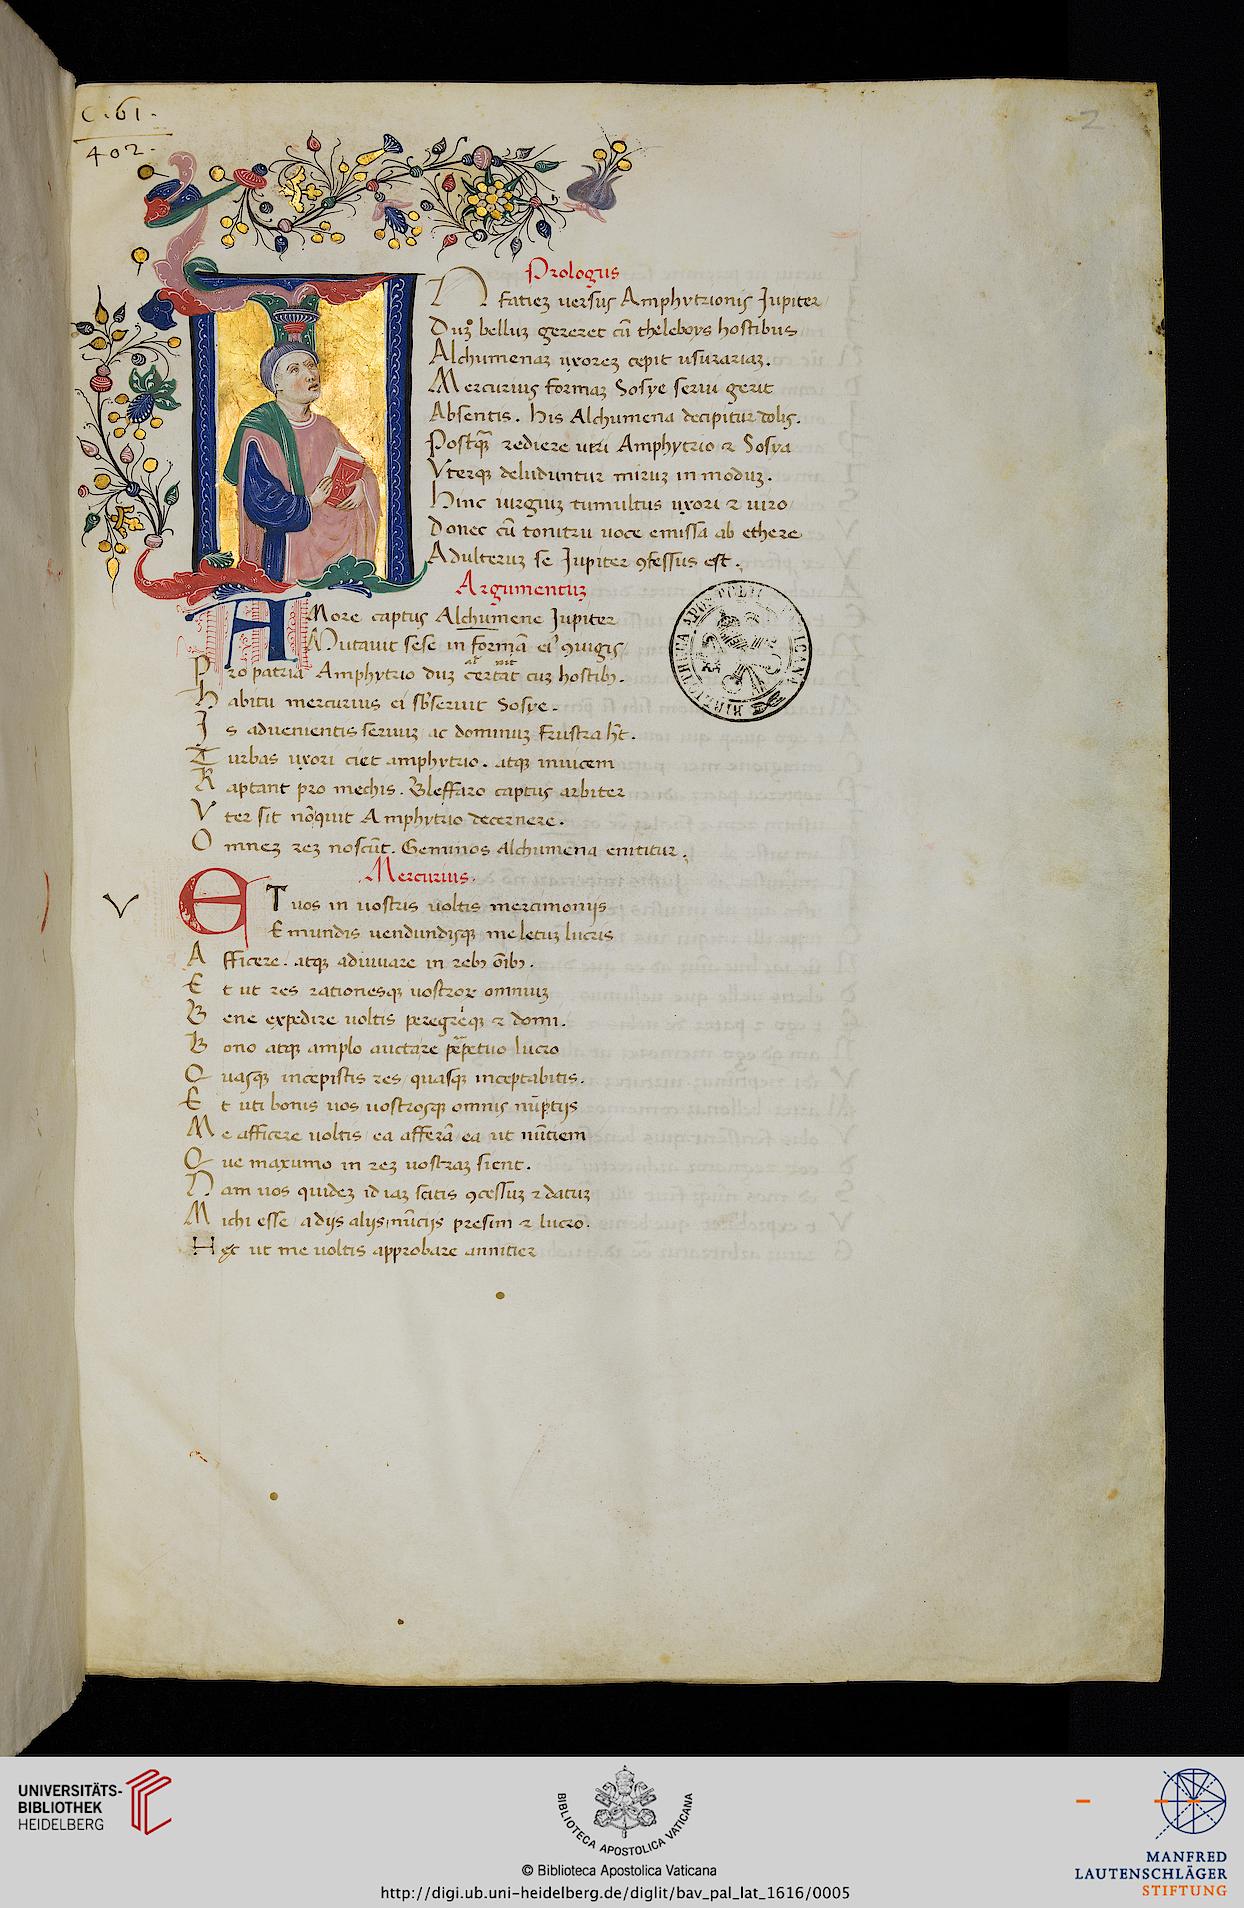 C. 61.
402.
2
Prologus
IN faciez uersus Amphytrionis Jupiter
Duz belluz gereret cũ theleboys hostibus
Alchumenaz uxorez cepit usurariaz.
Mercurius formaz Sosye serui gerit
Absentis. his Alchumena decipitur dolis.
Postq̃ rediere utri Amphytrio ⁊ Sosya
Vterqꝫ deluduntur miruz in moduz.
Hinc iurgiuz tumultus uxori ⁊ uiro
Donec cũ tonitru uoce emissa ab ethere
Adulteruz se Jupiter ꝯfessus est.
Argumentuz
AMore captus Alchumene Jupiter
Mutauit sese in formã eiꝰ ꝯiugis
Pro patria Amphytrio duz certat cuz hostibꝫ.
Habitu mercurius ei sb̓seruit Sosye.
Is aduenientis seruuz ac dominuz frustra ht̃.
Turbas uxori ciet amphytrio. atqꝫ inuicem
Raptant pro mechis. Bleffaro captus arbiter
Vter sit nõ quit Amphytrio decernere.
Omnez rez noscũt. Geminos alchumena enititur.
Mercurius.
V
ET uos in uostris uoltis mercimonijs
Emundis uendundisqꝫ me letuz lucris
Afficere. atqꝫ adiuuare in rebꝫ oĩbꝫ.
Et ut res rationesqꝫ uostroꝝ omniuz
Bene expedire uoltis peregreqꝫ ⁊ domi.
Bono atqꝫ amplo auctare perpetuo lucro
Quasqꝫ incepistis res quasqꝫ inceptabitis.
Et uti bonis uos uostrosqꝫ omnis nũptijs
Me afficere uoltis ea afferã ea ut nũtiem
Que maxumo in rez uostraz sient.
Nam uos quidez id iaz scitis ꝯcessuz ⁊ datuz
Michi esse a dijs alijs nũcijs presim ⁊ lucro.
Hęc ut me uoltis approbare annitier
BIBLIOTHECA APOSTOLICA VATICANA
UNIVERSITÄTS-
BIBLIOTHEK
HEIDELBERG
BIBLIOTECA APOSTOLICA VATICANA
© Biblioteca Apostolica Vaticana
http://digi.ub.uni-heidelberg.de/diglit/bav_pal_lat_1616/0005
MANFRED
LAUTENSCHLÄGER
STIFTUNG